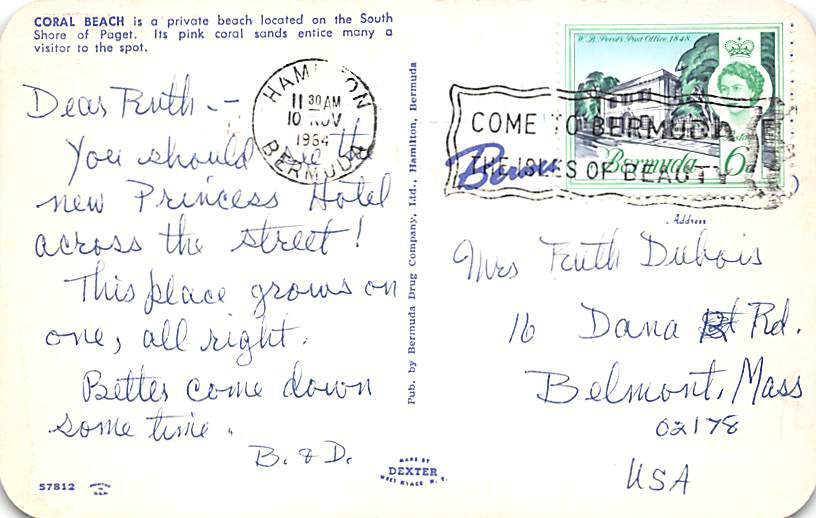 CORAL BEACH is a private beach located on the South
Shore of Paget. Its pink coral sands entice many a
visitor to the spot.
Dear Ruth -
You should see the
new Princess Hotel
across the street!
This place grows on
one, all right.
Better come down
some time.
B. & D.
57812
Pub. by Bermuda Drug Company, Ltd., Hamilton, Bermuda
MADE BY
DEXTER
WEST NYACK N. Y.
HAMILTON
11 30 AM
10 NOV
1964
BERMUDA
COME TO BERMUDA
THE ISLES OF BEAUTY
W. B. Perot's Post Office, 1848.
Bermuda 6d
Address
Mrs Ruth Dubois
16 Dana Rd.
Belmont, Mass
02178
USA